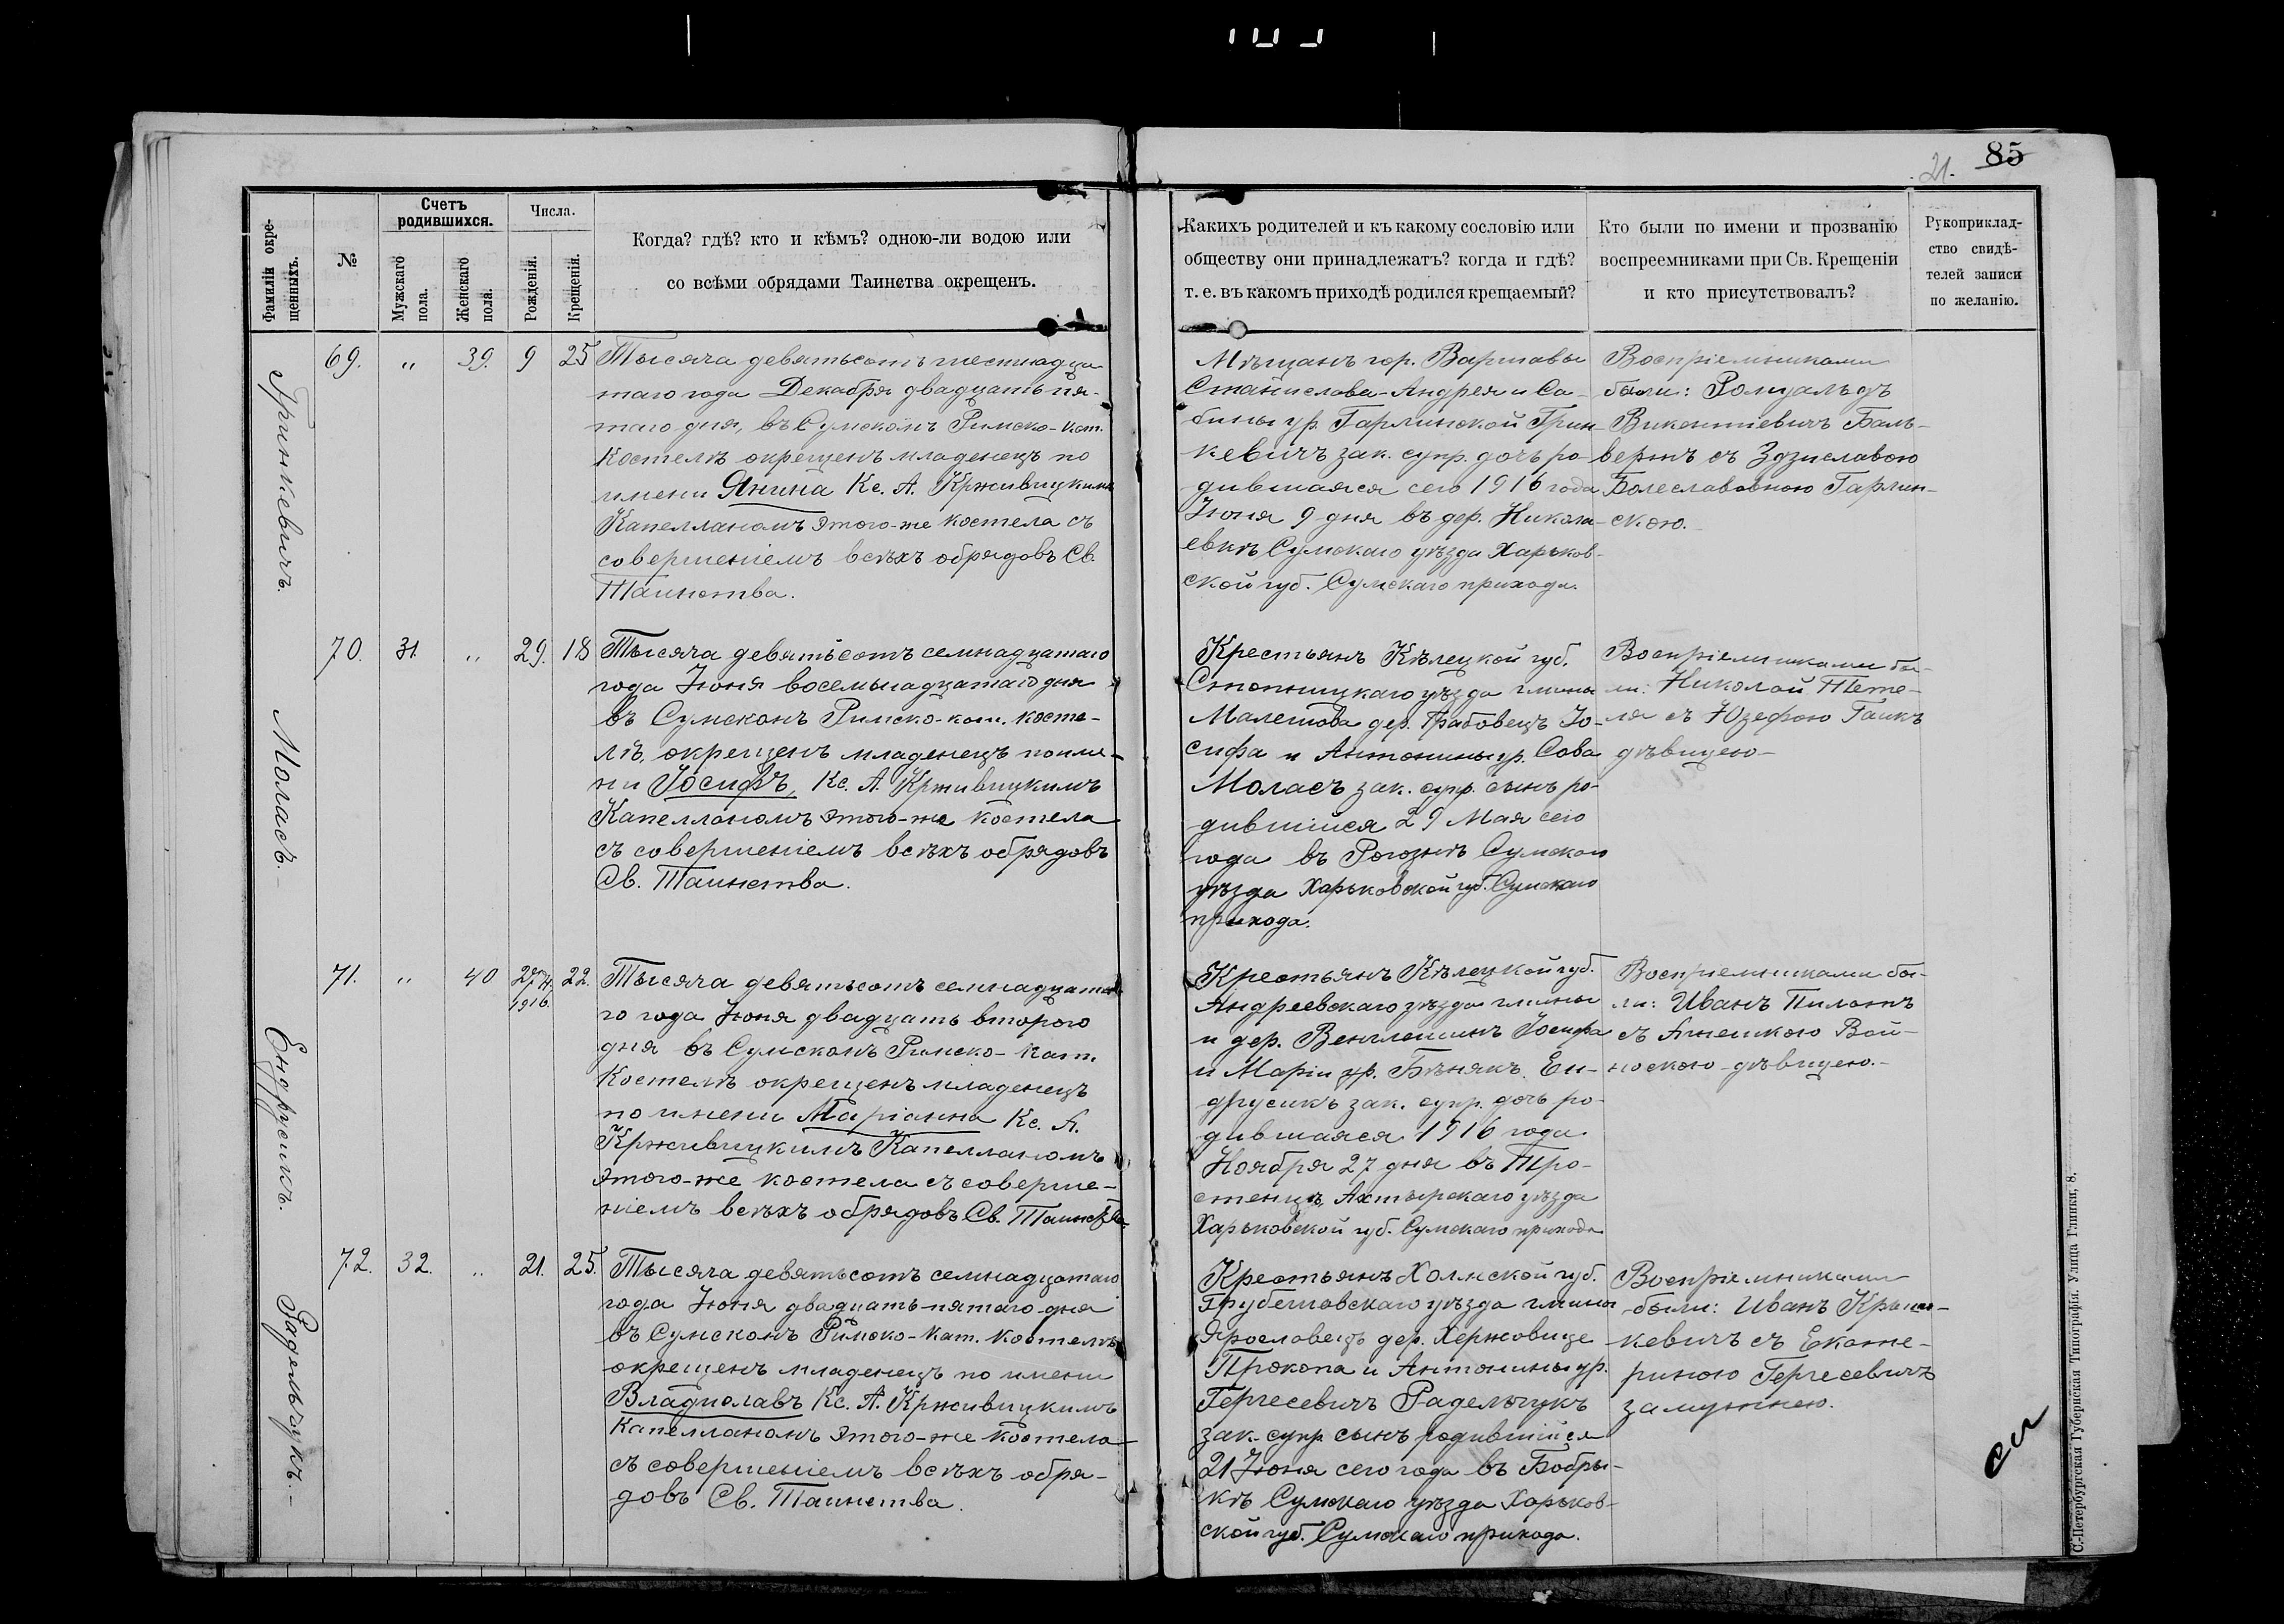 21. 85
Фамиліи окре-
щенныхъ.
№
Счетъ
родившихся.
Мужскаго
пола.
Женскаго
пола.
Числа.
Рожденія.
Крещенія.
Когда? гдѣ? кто и кѣмъ? одною-ли водою или
со всѣми обрядами Таинства окрещенъ.
Какихъ родителей и къ какому сословію или
обществу они принадлежатъ? когда и гдѣ?
т. е. въ какомъ приходѣ родился крещаемый?
Кто были по имени и прозванію
воспреемниками при Св. Крещеніи
и кто присутствовалъ?
Рукоприклад-
ство свидѣ-
телей записи
по желанію.
Гринкевичъ.
69. " 39. 9 25
Тысяча девятьсотъ шестнадца
таго года Декабря двадцать пя-
таго дня, въ Сумскомъ Римско-кат.
Костелѣ окрещенъ младенецъ по
имени Янина Кс. А. Крживицкимъ
Капелланомъ этого-же костела съ
совершеніемъ всѣхъ обрядовъ Св.
Таинства.
Мѣщанъ гор. Варшавы
Станислава-Андрея и Са-
бины ур. Гарлинской Грин-
кевичъ зак. супр. дочь ро-
дившаяся сего 1916 года
Іюня 9 дня въ дер. Никола-
евкѣ Сумскаго уѣзда Харьков-
ской губ. Сумскаго прихода.
Воспріемниками
были: Ромуальдъ
Викентіевичъ Баль-
вержъ съ Здзиславою
Болеславовною Гарлин-
скою.
Моласъ.
70. 31. " 29. 18
Тысяча девятьсотъ семнадцатаго
года Іюня восемьнадцатаго дня
въ Сумскомъ Римско-кат. косте-
лѣ, окрещенъ младенецъ по име-
ни Іосифъ, Кс. А. Крживицкимъ
Капелланомъ этого-же костела
съ совершеніемъ всѣхъ обрядовъ
Св. Таинства.
Крестьянъ Кѣлецкой губ.
Стопницкаго уѣзда гмины
Малешова дер. Грабовецъ Іо-
сифа и Антонины ур. Сова
Моласъ зак. супр. сынъ ро-
дившійся 29 Мая сего
года въ Рогознѣ Сумскаго
уѣзда Харьковской губ. Сумскаго
прихода.
Воспріемниками бы-
ли: Николай Тете-
ля съ Юзефою Гаикъ
дѣвицею-
Ендрусикъ.
71. " 40 27/XI. 1916. 22.
Тысяча девятьсотъ семнадцата-
го года Іюня двадцать второго
дня въ Сумскомъ Римско-кат.
Костелѣ окрещенъ младенецъ
по имени Маріанна Кс. А.
Крживицкимъ Капелланомъ
этого-же костела съ соверше-
ніемъ всѣхъ обрядовъ Св. Таинства
Крестьянъ Кѣлецкой губ.
Андреевскаго уѣзда гмины
и дер. Іосифа
и Маріи ур. Бѣнякъ. Ен-
друсикъ зак. супр. дочь ро-
дившаяся 1916 года
Ноября 27 дня въ Тро-
стенцѣ, Ахтырскаго уѣзда
Харьковской губ. Сумскаго прихода
Воспріемниками бы-
ли: Иванъ Пилатъ
съ Агнешкою Вой-
носкою-дѣвицею.-
Радельчукъ.-
72. 32. " 21. 25.
Тысяча девятьсотъ семнадцатаго
года Іюня двадцать-пятаго-дня
въ Сумскомъ Римско-Кат. Костелѣ
окрещенъ младенецъ по имени
Владиславъ Кс. А. Крживицкимъ
Капелланомъ этого-же костела
съ совершеніемъ всѣхъ обря-
довъ Св. Таинства.
Крестьянъ Холмской губ.
Грубешовскаго уѣзда гмины
Ярославецъ дер. Хержовице
Прокопа и Антонины ур.
Гергесевичъ Радельчукъ
зак. супр. сынъ родившійся
21 Іюня сего года въ Бобры-
кѣ Сумскаго уѣзда Харьков-
ской губ. Сумскаго прихода.
Воспріемниками
были:
кевичъ съ Екате-
риною Гергесевичъ
замужнею.
С.-Петербургская Губернская Типографія. Улица Глинки, 8.